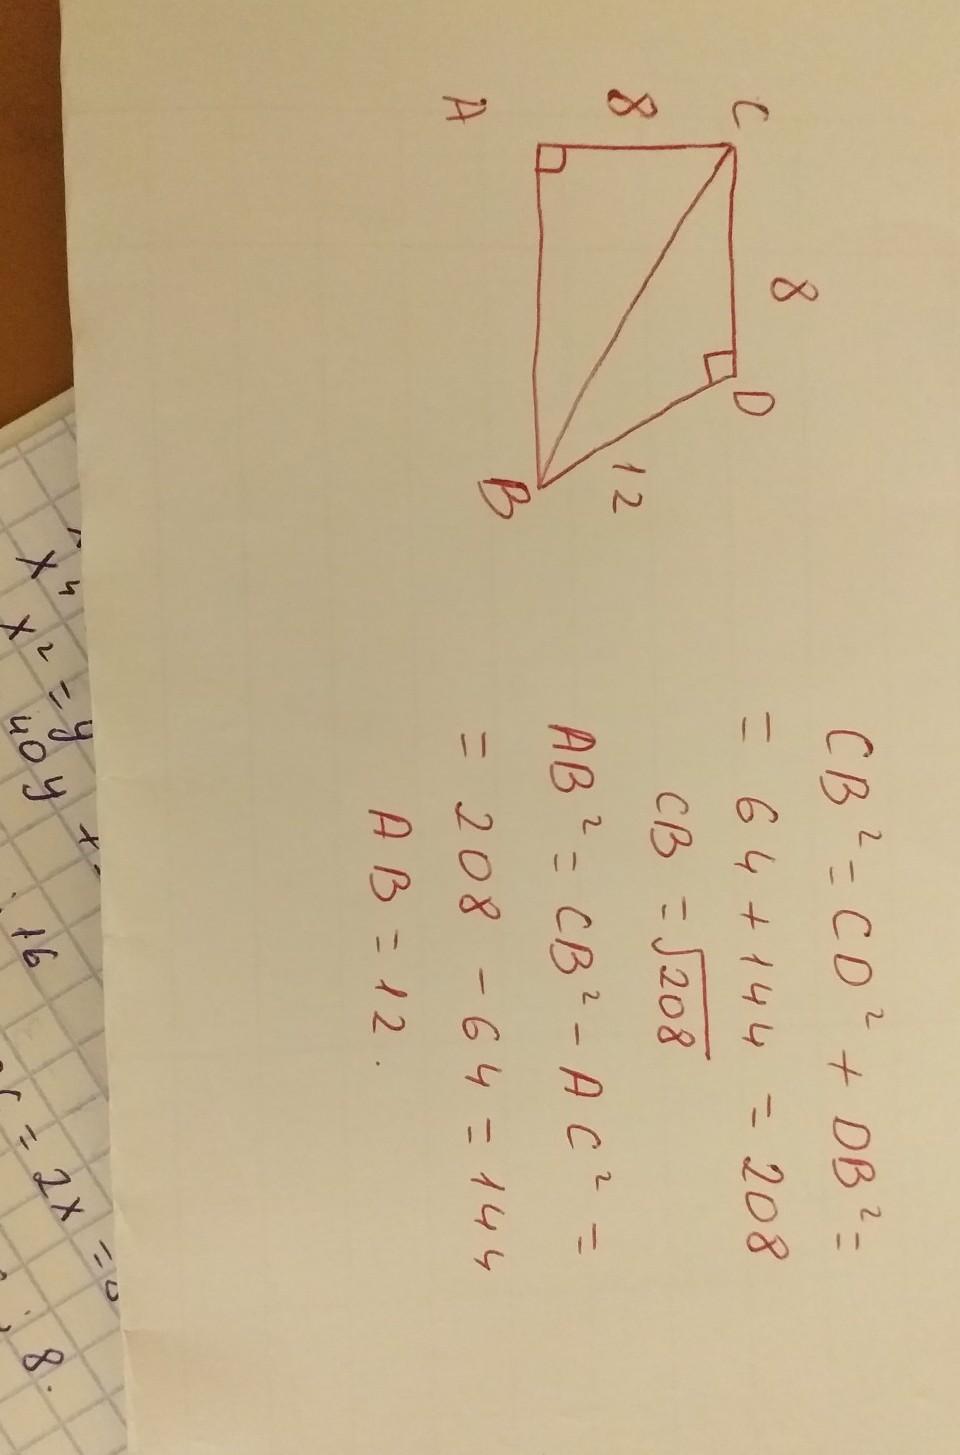 C
8
D
8
12
A
B
CB² = CD² + DB² =
= 64 + 144 = 208
CB = √208
AB² = CB² - AC² =
= 208 - 64 = 144
AB = 12.
x⁴
x² = y
40y
16
= 2x =
8.